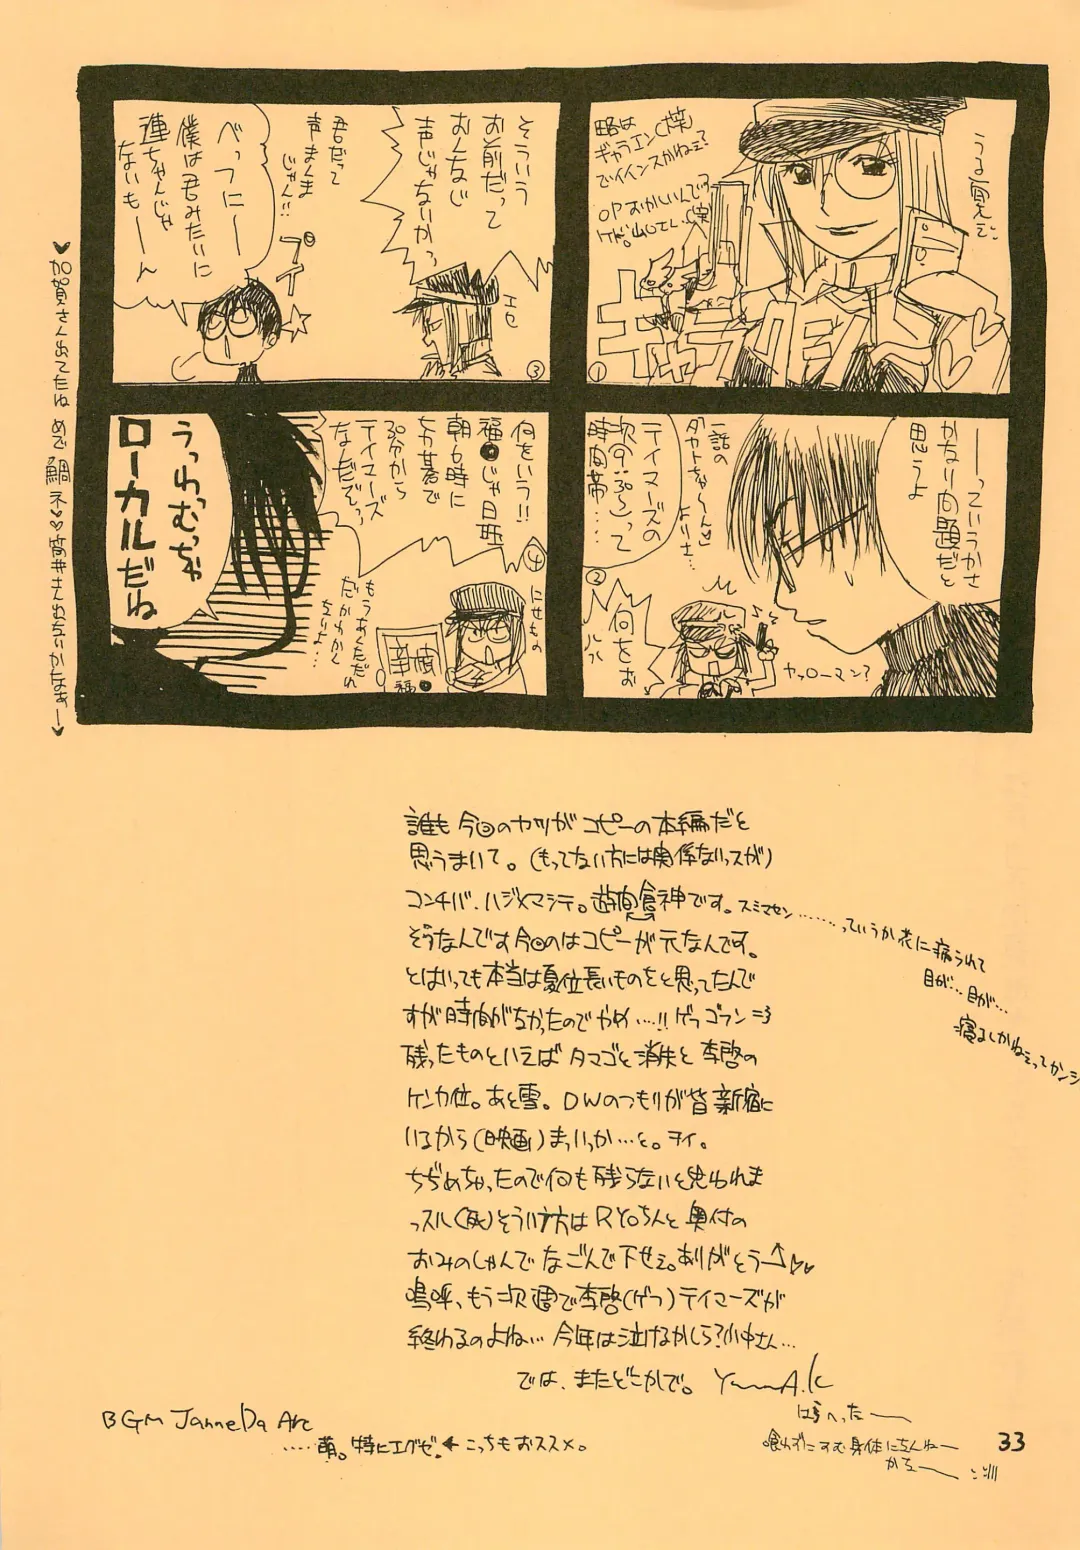 うる覚えで。
略は
ギャラエン(笑)
でイインスかねぇ?
OPおかしいんです
ケド。(笑)
ギャラクエン
①
――っていうかさ
かなり問題だと
思うよ
一話の
タカトちゃ〜ん♥
よりさ…
テイマーズの
次の(9:30〜)って
時間帯…
②
何をぉ
ヤッローマン?
そういう
お前だって
おんなじ
声じゃないかっ
エセ
君だって
声まんま
じゃん!!
プイ☆
べっつにー
僕は君みたいに
連ちゃんじゃ
ないもーーん
③
何をいう!!
福●じゃ日曜
朝6時に
30分から
テイマーズ
なんだぞっ
④
にせもの
もうおくただれ
だかわかん
ないよ…
福●
うっわっむっちゃ
ローカルだね
♥加賀さん出てたね めで鯛ネ♥♥
誰も今回のヤツがコピーの本編だと
思うまいて。(もってない方には関係ないっスが)
コンチバ、ハジメマシテ。遊間食神です。スミマセン……っていうか
そうなんです今回のはコピーが元なんです。
とはいっても本当は夏位長いものをと思ってたんで
すが時間がなかったのでやめ…!!ゲフゴフン=3
残ったものといえばタマゴと消失と李啓の
ケンカ位。あと雪。DWのつもりが皆新宿に
いるから(映画)まっいっか…と。ヲイ。
ちぢめちゃったので何も残らないと思われま
っスル(死)そういう方はRYOちんと奥付の
おみのしゃんでなごんで下せぇ。ありがとう↑♥♥
嗚呼、もう次週で李啓(ゲフ)テイマーズが
終わるのよね… 今年は泣けるかしら?小中さん…
では、またどこかで。
目が…目が…
寝るしかねぇってカンジ
はらへったー
喰わずにすむ身体になんねー
かなー
BGM Janne Da Arc
……萌。特にエグゼ。←こっちもおススメ。
33